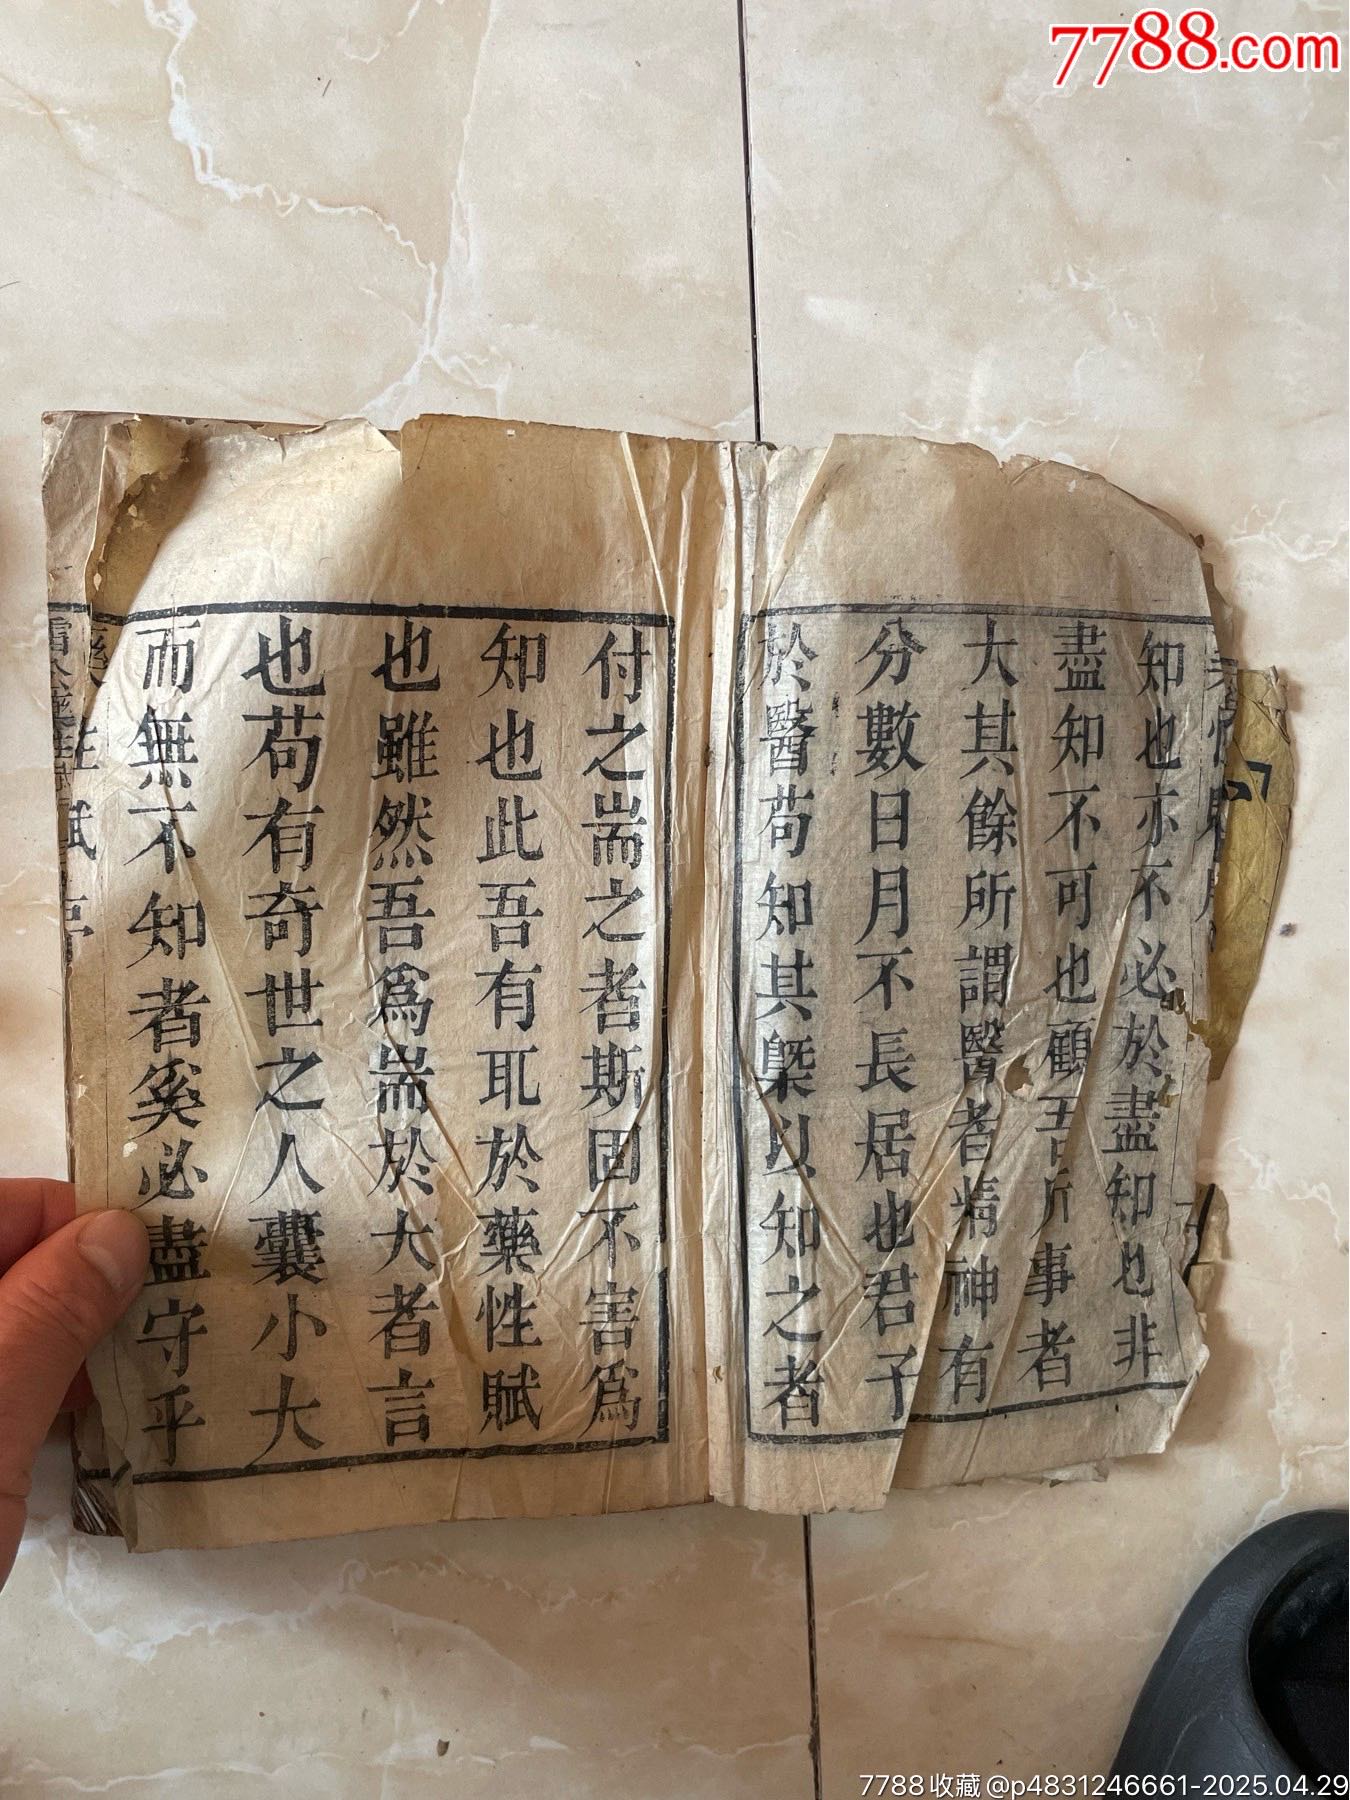 7788.com
知也亦不必於盡知也非
盡知不可也顧吾斤事者
大其餘所謂醫者精神有
分數日月不長居也君子
於醫苟知其槩以知之者
付之耑之者斯固不害爲
知也此吾有取於藥性賦
也雖然吾爲耑於大者言
也苟有奇世之人囊小大
而無不知者奚必盡守乎
藥性賦序
7788收藏@p4831246661-2025.04.29